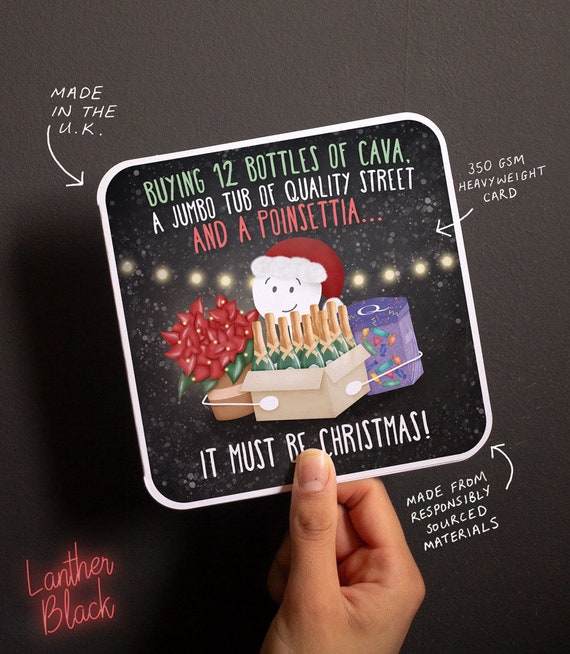 MADE
IN THE
U.K.
BUYING 12 BOTTLES OF CAVA,
A JUMBO TUB OF QUALITY STREET
AND A POINSETTIA...
350 GSM
HEAVYWEIGHT
CARD
Q
IT MUST BE CHRISTMAS!
MADE FROM
RESPONSIBLY
SOURCED
MATERIALS
Lanther
Black